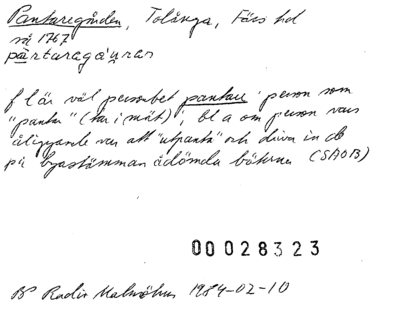 Pantaregården, Tolånga, Färs hd
så 1767
pàrtaragáuran
f l är väl personbet pantare 'person som
"pantar" (tar i mät)'; bl a om person vars
åliggande var att "utpanta" och driva in de
på byastämman ådömda böterna (SAOB)
00028323
BP Radio Malmöhus 1984-02-10